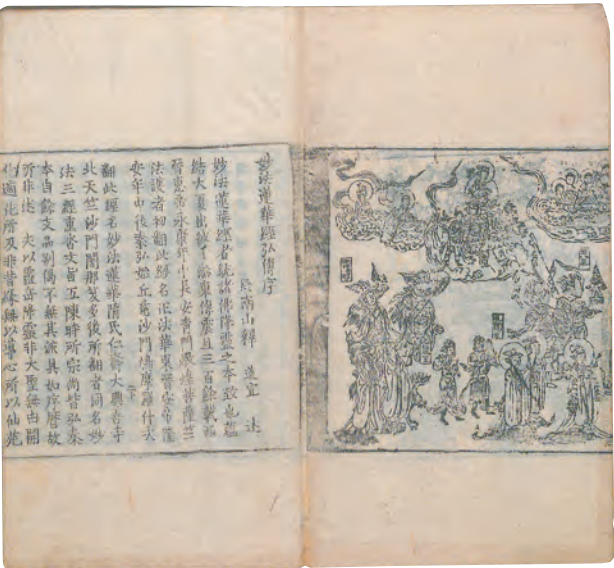 妙法蓮華經弘傳序
終南山釋 道宣 述
妙法蓮華經者統諸佛降靈之本致也蘊
結大夏出彼千齡東傳震旦三百餘載西
晉惠帝永康年中長安青門燉煌菩薩竺
法護者初翻此經名正法華東晉安帝隆
安年中後秦弘始丘茲沙門鳩摩羅什次
翻此經名妙法蓮華隋氏仁壽大興善寺
北天竺沙門闍那笈多後所翻者同名妙
法三經重沓文旨互陳時所宗尚皆弘秦
本自餘支品別偈不無其流具如序曆故
所非述 夫以靈岳降靈非大聖無由開
化適化所及非昔緣無以導心所以仙苑